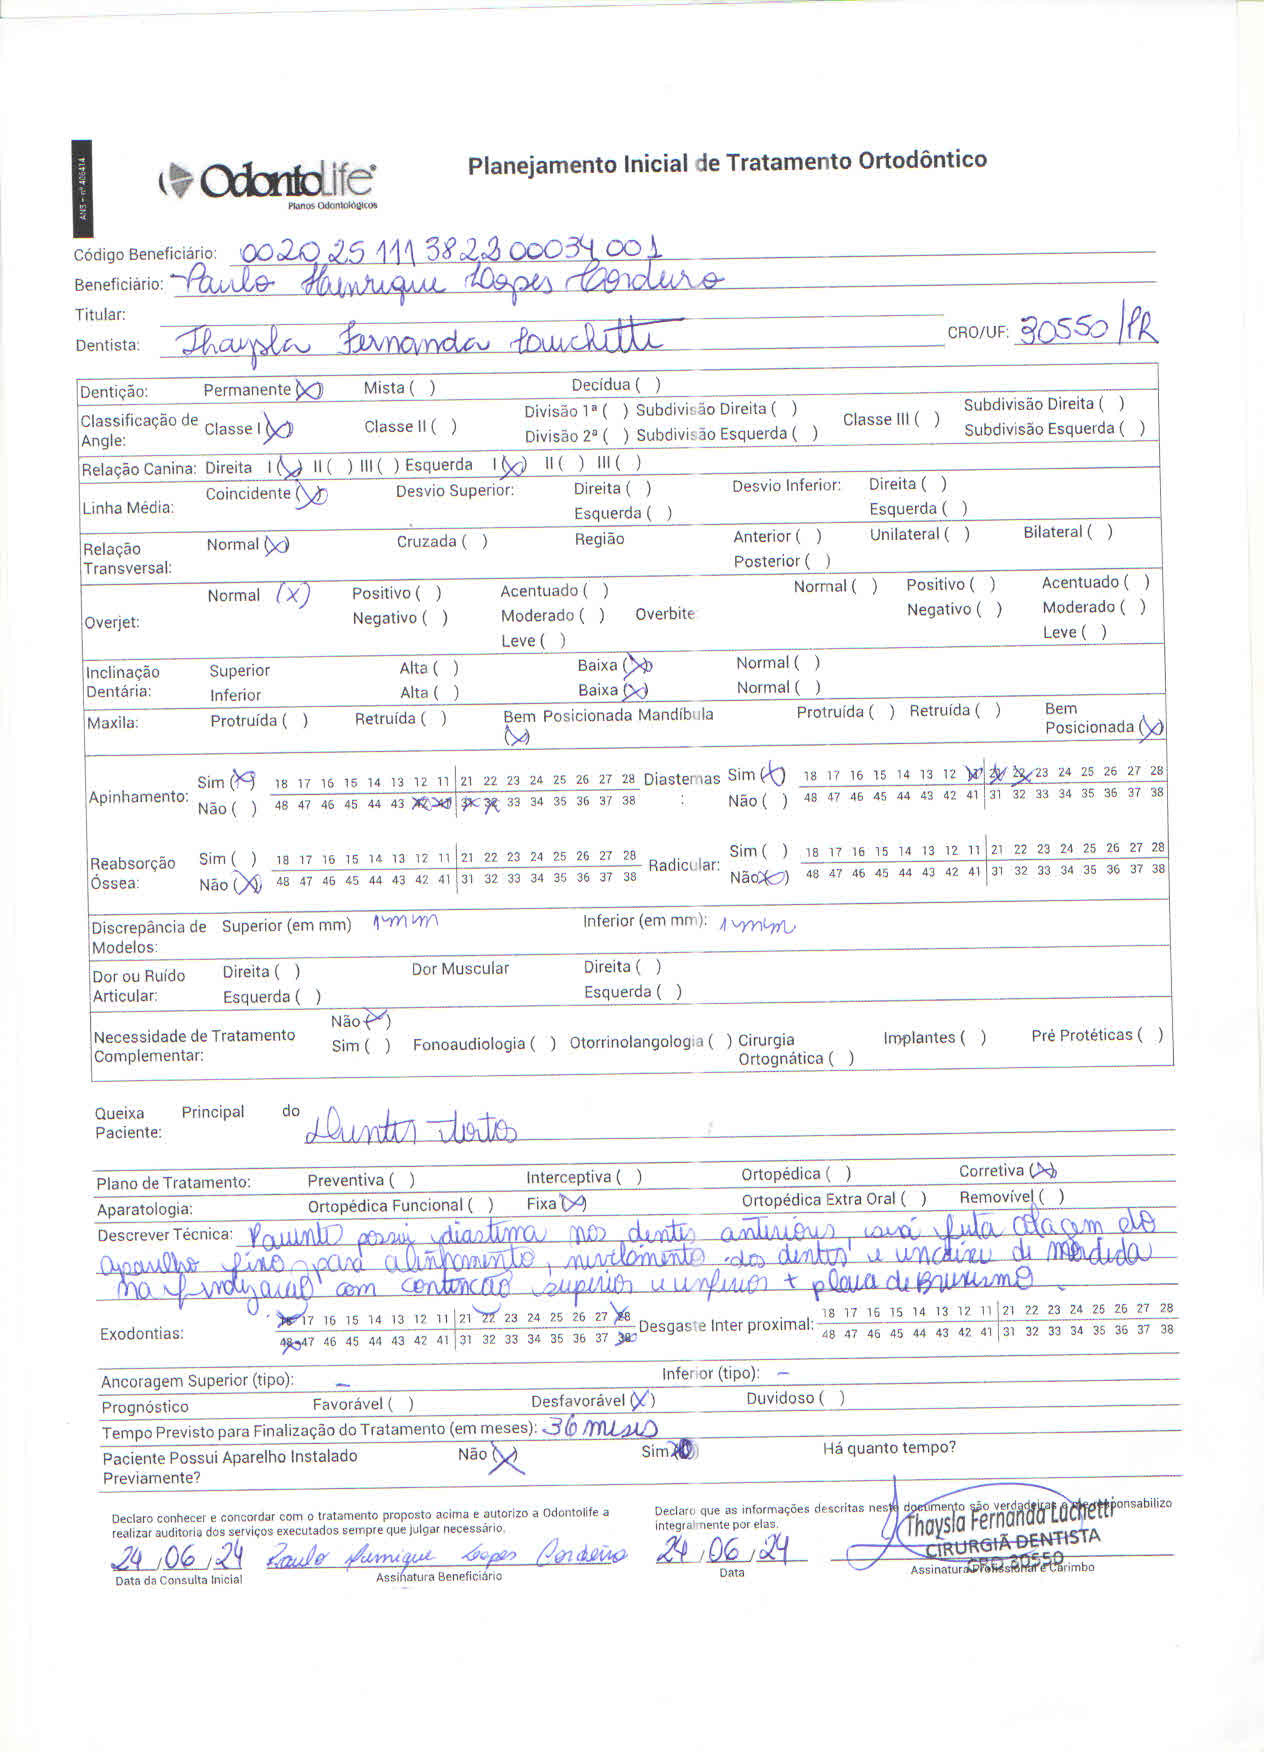 ANS - nº 406414
OdontoLife®
Planos Odontológicos
Planejamento Inicial de Tratamento Ortodôntico
Código Beneficiário: 002025111382200034001
Beneficiário: Paulo Henrique Lopes Cordeiro
Titular:
Dentista: Thaysla Fernanda CRO/UF: 30550/PR
Dentição: Permanente (X) Mista ( ) Decídua ( )
Classificação de Angle: Classe I (X) Classe II ( ) Divisão 1ª ( ) Subdivisão Direita ( ) Classe III ( ) Subdivisão Direita ( )
Divisão 2ª ( ) Subdivisão Esquerda ( ) Subdivisão Esquerda ( )
Relação Canina: Direita I (X) II ( ) III ( ) Esquerda I (X) II ( ) III ( )
Linha Média: Coincidente (X) Desvio Superior: Direita ( ) Desvio Inferior: Direita ( )
Esquerda ( ) Esquerda ( )
Relação Transversal: Normal (X) Cruzada ( ) Região Anterior ( ) Unilateral ( ) Bilateral ( )
Posterior ( )
Overjet: Normal (X) Positivo ( ) Acentuado ( ) Overbite Normal ( ) Positivo ( ) Acentuado ( )
Negativo ( ) Moderado ( ) Negativo ( ) Moderado ( )
Leve ( ) Leve ( )
Inclinação Dentária: Superior Alta ( ) Baixa (X) Normal ( )
Inferior Alta ( ) Baixa (X) Normal ( )
Maxila: Protruída ( ) Retruída ( ) Bem Posicionada (X) Mandíbula Protruída ( ) Retruída ( ) Bem Posicionada (X)
Apinhamento: Sim (X) 18 17 16 15 14 13 12 11 21 22 23 24 25 26 27 28 Diastemas: Sim (X) 18 17 16 15 14 13 12 11 21 22 23 24 25 26 27 28
Não ( ) 48 47 46 45 44 43 42 41 31 32 33 34 35 36 37 38 Não ( ) 48 47 46 45 44 43 42 41 31 32 33 34 35 36 37 38
Reabsorção Óssea: Sim ( ) 18 17 16 15 14 13 12 11 21 22 23 24 25 26 27 28 Radicular: Sim ( ) 18 17 16 15 14 13 12 11 21 22 23 24 25 26 27 28
Não (X) 48 47 46 45 44 43 42 41 31 32 33 34 35 36 37 38 Não (X) 48 47 46 45 44 43 42 41 31 32 33 34 35 36 37 38
Discrepância de Modelos: Superior (em mm) 1mm Inferior (em mm): 1mm
Dor ou Ruído Articular: Direita ( ) Dor Muscular Direita ( )
Esquerda ( ) Esquerda ( )
Necessidade de Tratamento Complementar: Não (X)
Sim ( ) Fonoaudiologia ( ) Otorrinolangologia ( ) Cirurgia Ortognática ( ) Implantes ( ) Pré Protéticas ( )
Queixa Principal do Paciente: Dentes tortos
Plano de Tratamento: Preventiva ( ) Interceptiva ( ) Ortopédica ( ) Corretiva (X)
Aparatologia: Ortopédica Funcional ( ) Fixa (X) Ortopédica Extra Oral ( ) Removível ( )
Descrever Técnica: Paciente possui diastema nos dentes anteriores, será feita colagem do
aparelho fixo para alinhamento, nivelamento dos dentes e encaixe de mordida
na finalização com contenção superior e inferior + placa de Bruxismo.
Exodontias: 18 17 16 15 14 13 12 11 21 22 23 24 25 26 27 28 Desgaste Inter proximal: 18 17 16 15 14 13 12 11 21 22 23 24 25 26 27 28
48 47 46 45 44 43 42 41 31 32 33 34 35 36 37 38 48 47 46 45 44 43 42 41 31 32 33 34 35 36 37 38
Ancoragem Superior (tipo): – Inferior (tipo): –
Prognóstico Favorável ( ) Desfavorável (X) Duvidoso ( )
Tempo Previsto para Finalização do Tratamento (em meses): 36 meses
Paciente Possui Aparelho Instalado Previamente? Não (X) Sim Há quanto tempo?
Declaro conhecer e concordar com o tratamento proposto acima e autorizo a Odontolife a
realizar auditoria dos serviços executados sempre que julgar necessário.
Declaro que as informações descritas neste documento são verdadeiras e me responsabilizo
integralmente por elas.
24/06/24 Paulo Henrique Lopes Cordeiro 24/06/24
Thaysla Fernanda Lachetti
CIRURGIÃ DENTISTA
CRO 30550
Data da Consulta Inicial Assinatura Beneficiário Data Assinatura Profissional e Carimbo